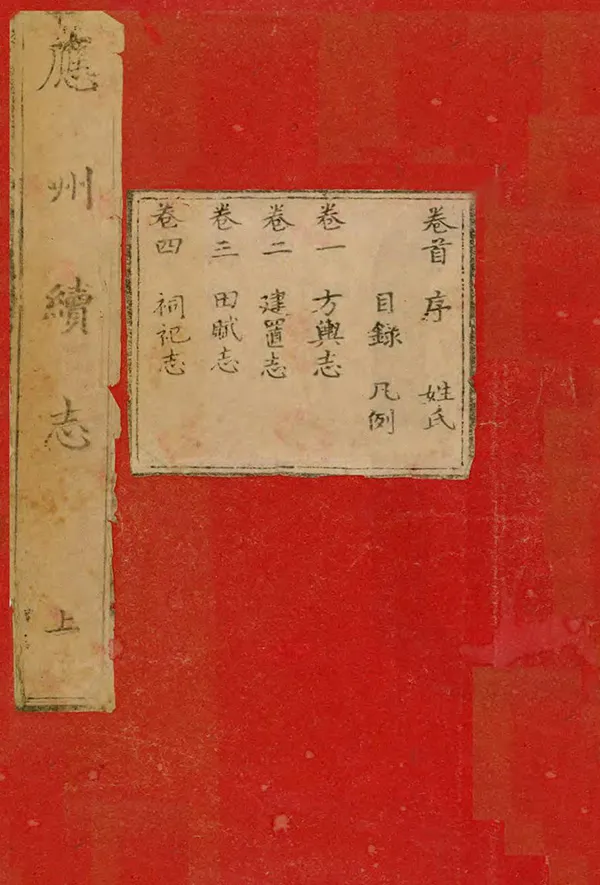 應州續志 上
卷首 序 姓氏
目錄 凡例
卷一 方輿志
卷二 建置志
卷三 田賦志
卷四 祠祀志